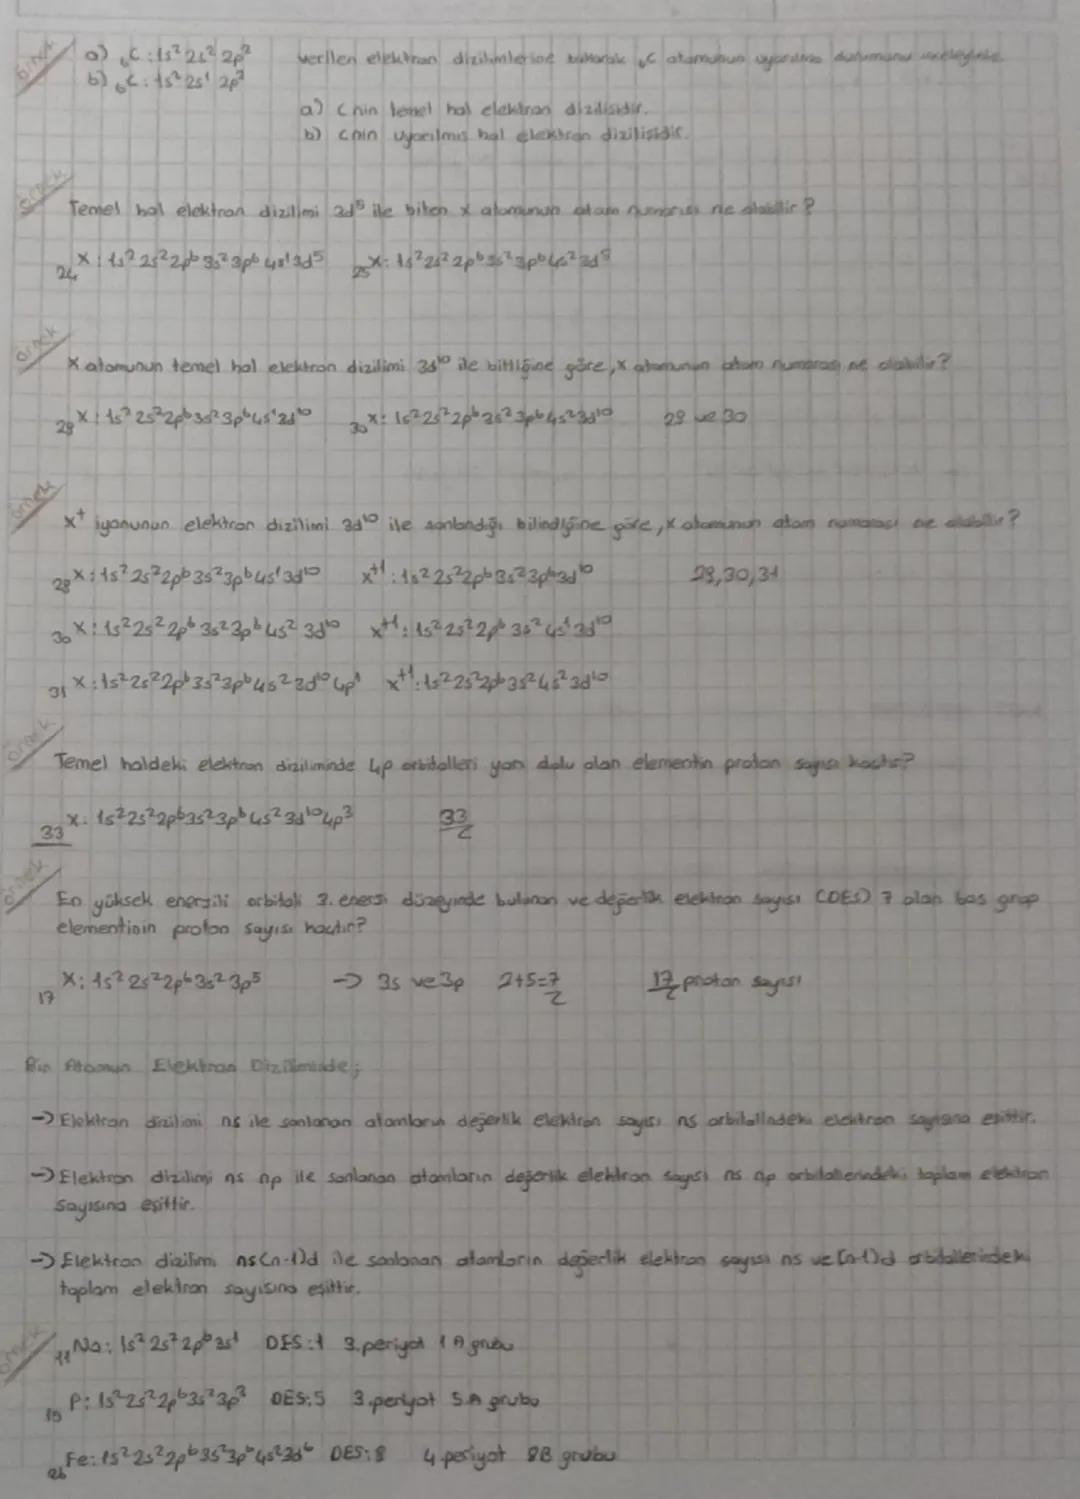 örnek
a) ₆C : 1s² 2s² 2p² verilen elektron dizilimlerine bakarak ₆C atomunun uyarılma durumunu inceleyiniz.
b) ₆C : 1s² 2s¹ 2p³
a) C nin temel hal elektron dizilişidir.
b) C nin uyarılmış hal elektron dizilişidir.
örnek
Temel hal elektron dizilimi 3d⁵ ile biten x atomunun atom numarası ne olabilir?
₂₄X : 1s² 2s² 2p⁶ 3s² 3p⁶ 4s¹ 3d⁵ ₂₅X : 1s² 2s² 2p⁶ 3s² 3p⁶ 4s² 3d⁵
örnek
X atomunun temel hal elektron dizilimi 3d¹⁰ ile bittiğine göre, x atomunun atom numarası ne olabilir?
₂₉X : 1s² 2s² 2p⁶ 3s² 3p⁶ 4s¹ 3d¹⁰ ₃₀X : 1s² 2s² 2p⁶ 3s² 3p⁶ 4s² 3d¹⁰ 29 ve 30
örnek
X⁺ iyonunun elektron dizilimi 3d¹⁰ ile sonlandığı bilindiğine göre, X atomunun atom numarası ne olabilir?
₂₉X : 1s² 2s² 2p⁶ 3s² 3p⁶ 4s¹ 3d¹⁰ X⁺¹ : 1s² 2s² 2p⁶ 3s² 3p⁶ 3d¹⁰ 29, 30, 31
₃₀X : 1s² 2s² 2p⁶ 3s² 3p⁶ 4s² 3d¹⁰ X⁺¹ : 1s² 2s² 2p⁶ 3s² 4s¹ 3d¹⁰
₃₁X : 1s² 2s² 2p⁶ 3s² 3p⁶ 4s² 3d¹⁰ 4p¹ X⁺¹ : 1s² 2s² 2p⁶ 3s² 4s² 3d¹⁰
örnek
Temel haldeki elektron diziliminde 4p orbitalleri yarı dolu olan elementin proton sayısı kaçtır?
₃₃X : 1s² 2s² 2p⁶ 3s² 3p⁶ 4s² 3d¹⁰ 4p³ 33
örnek
En yüksek enerjili orbitali 3. enerji düzeyinde bulunan ve değerlik elektron sayısı (DES) 7 olan baş grup
elementinin proton sayısı kaçtır?
₁₇X : 1s² 2s² 2p⁶ 3s² 3p⁵ → 3s ve 3p 2+5=7 17 proton sayısı
Bir Atomun Elektron Diziliminde;
→ Elektron dizilimi ns ile sonlanan atomların değerlik elektron sayısı ns orbitalindeki elektron sayısına eşittir.
→ Elektron dizilimi ns np ile sonlanan atomların değerlik elektron sayısı ns np orbitallerindeki toplam elektron
sayısına eşittir.
→ Elektron dizilimi ns(n-1)d ile sonlanan atomların değerlik elektron sayısı ns ve (n-1)d orbitallerindeki
toplam elektron sayısına eşittir.
örnek
₁₁Na : 1s² 2s² 2p⁶ 3s¹ DES : 1 3. periyot 1A grubu
₁₅P : 1s² 2s² 2p⁶ 3s² 3p³ DES : 5 3. periyot 5A grubu
₂₆Fe : 1s² 2s² 2p⁶ 3s² 3p⁶ 4s² 3d⁶ DES : 8 4. periyot 8B grubu